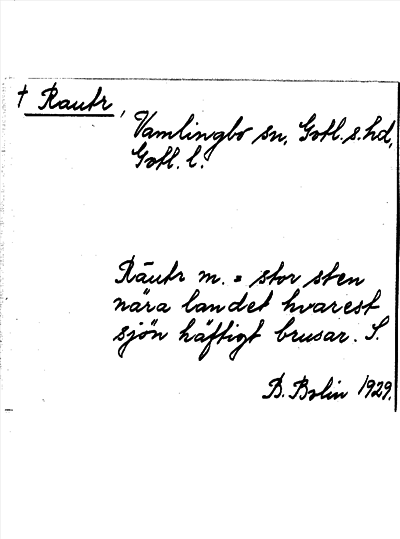 † Rautr,
Vamlingbo sn, Gotl. s. hd,
Gotl. l.
Räutr m. = stor sten
nära landet hvarest
sjön häftigt brusar. S.
B. Bolin 1929.